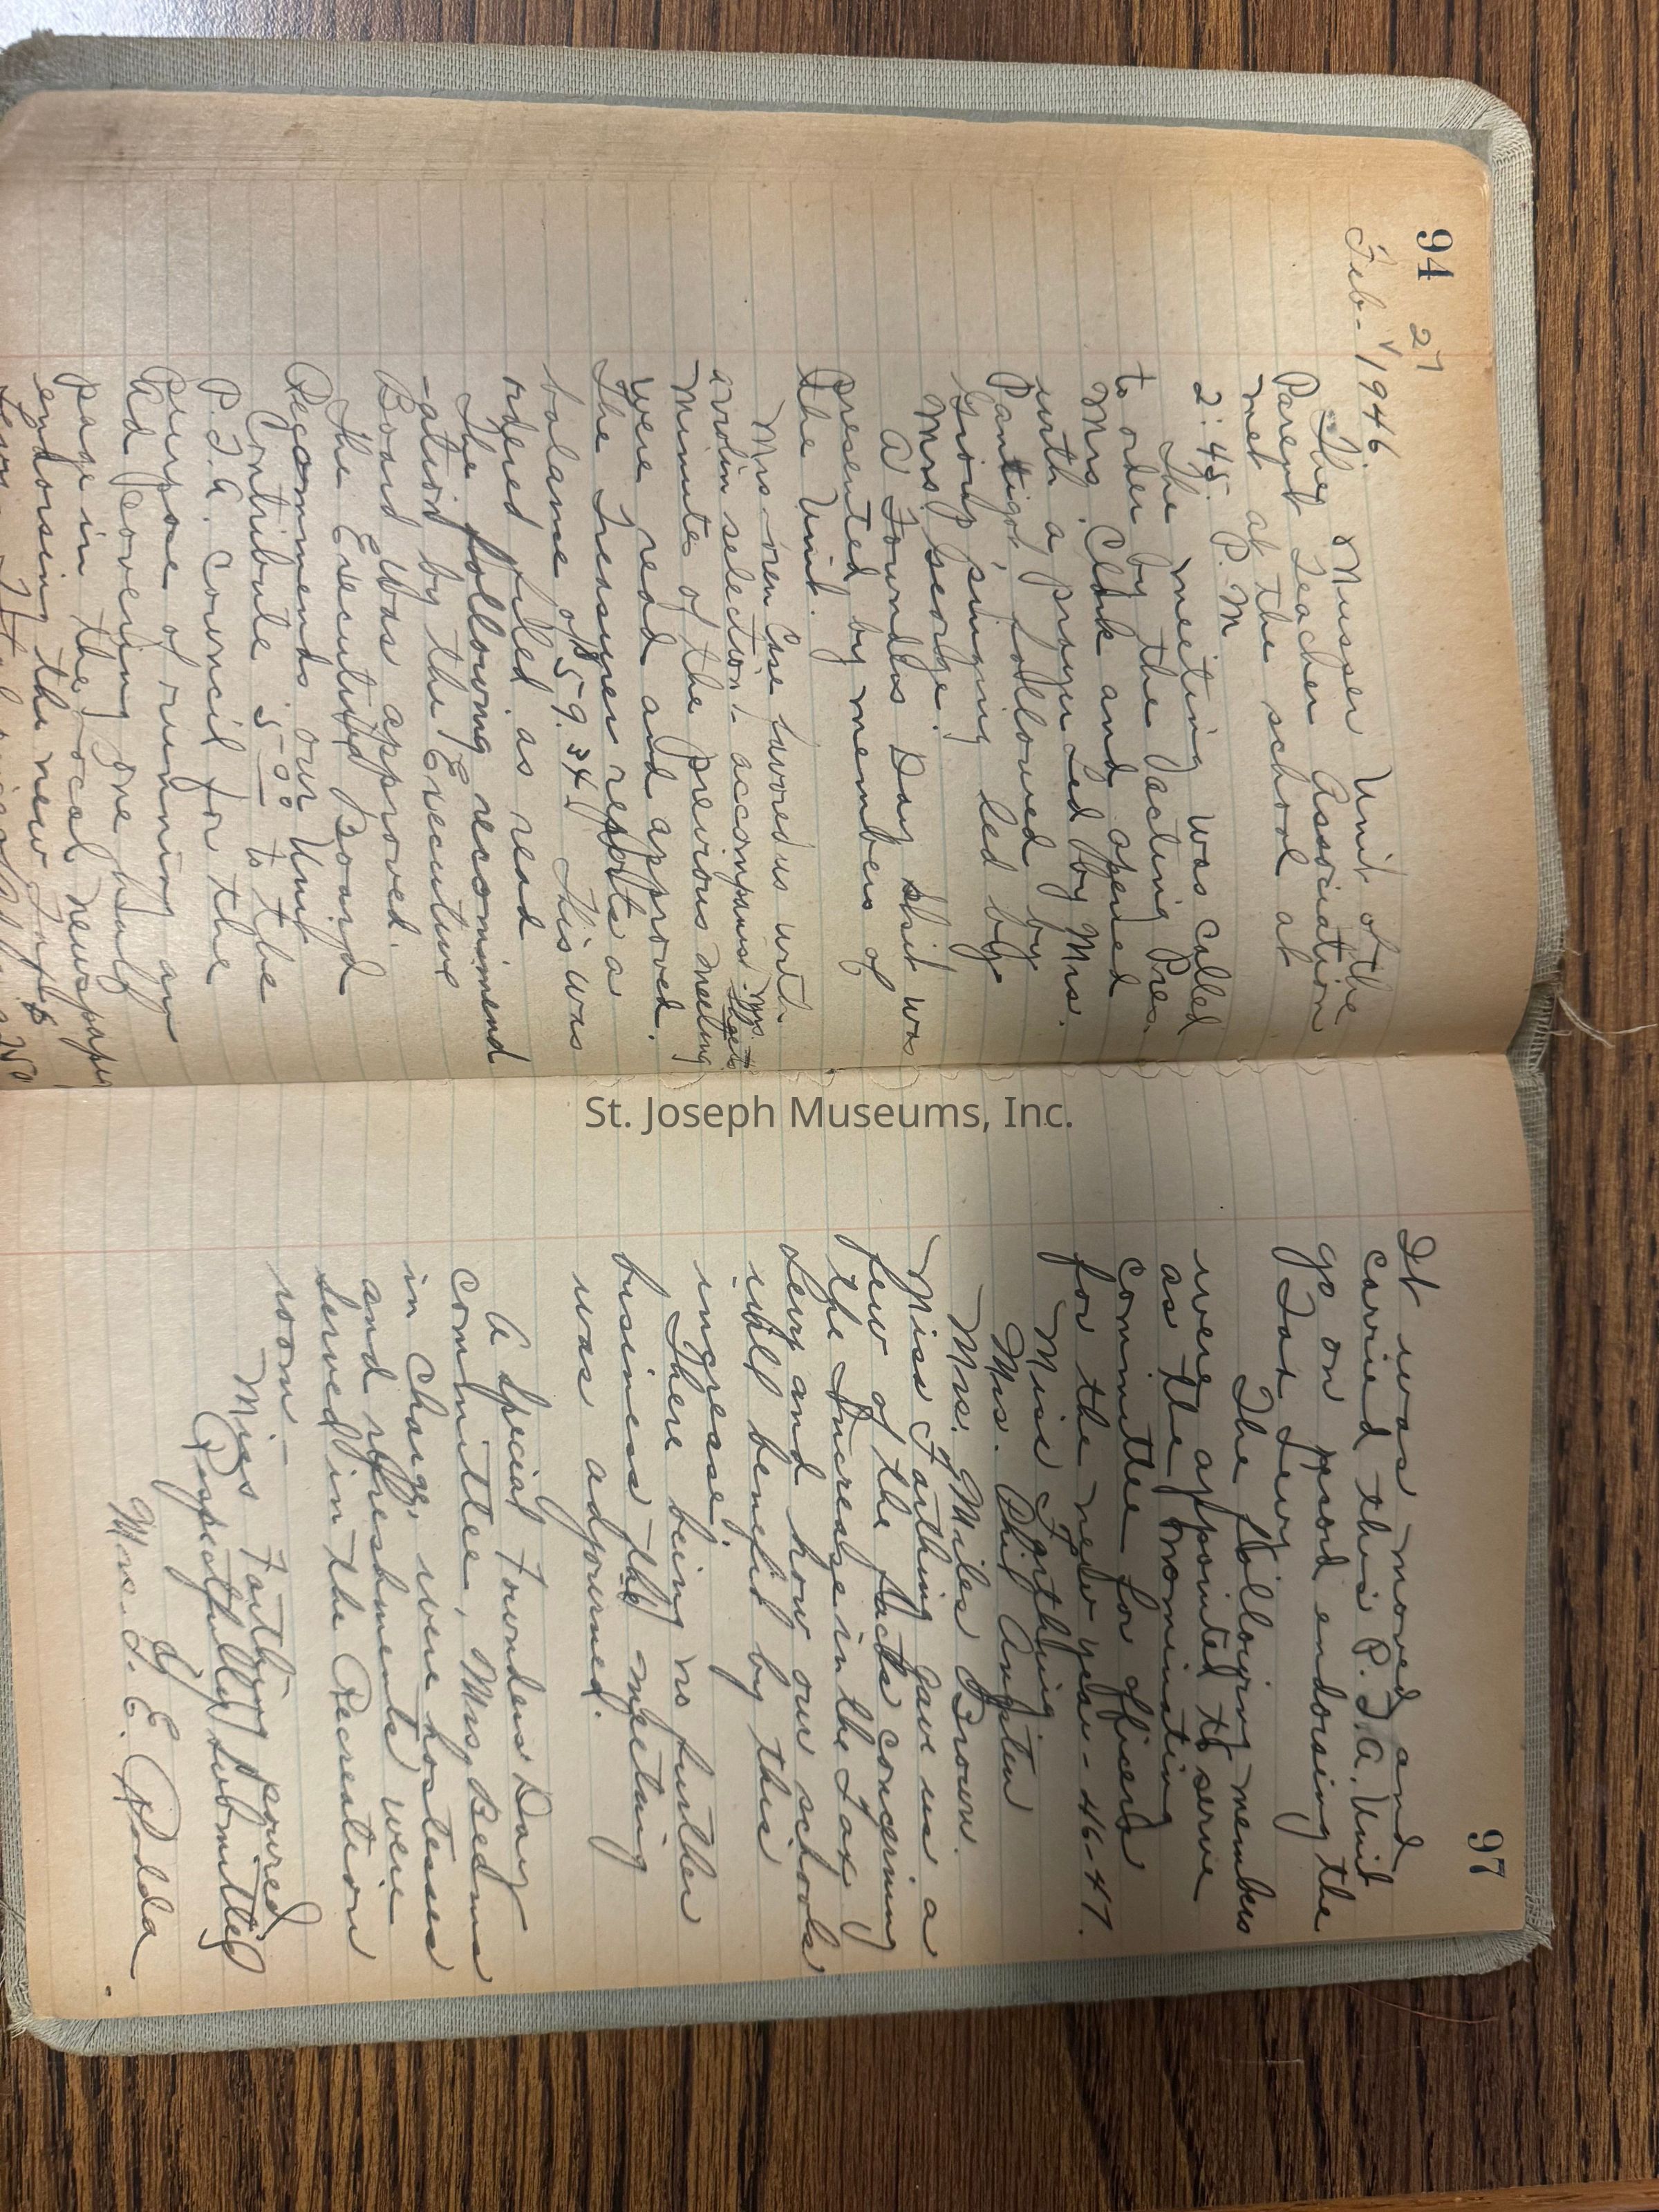 94
27
Feb - 1946.
The Musser Unit of the
Parent Teacher Association
met at the school at
2:45. P. M
The meeting was called
to order by the acting Pres.
Mrs. Clark and opened
with a prayer Led by Mrs.
followed by
Group singing led by
Mrs. George.
A Founders Day skit was
presented by members of
the Unit.
Mrs. Oren Case favored us with
a violin selection - accompanist Mrs.
Minutes of the previous meeting
were read and approved.
The Treasurer reports a
balance of $59.34. This was
ordered filed as read
The following recommend
-ation by the Executive
Board was approved.
The Executive Board
Recommends our Unit
Contribute 5.00 to the
P.T.A. Council for the
purpose of running an
Ad covering one half
page in the local newspaper
endorsing the new Tax
St. Joseph Museums, Inc.
97
It was moved and
carried this P.T.A. Unit
go on record endorsing the
Tax Levy
The following members
were appointed to serve
as the nominating
committee for officers
for the new year - 46-47.
Miss Farthing
Mrs. Phil
Mrs. Miles Brown.
Miss Farthing gave us a
few of the facts concerning
the Increase in the Tax
Levy and how our schools
will benefit by this
increase.
There being no further
business the meeting
was adjourned.
A Special Founders Day
committee, Mrs.
in charge, were hostesses
and refreshments were
served in the Recreation
room -
Miss Farthing poured
Respectfully submitted
Mrs. G. E. Rodda